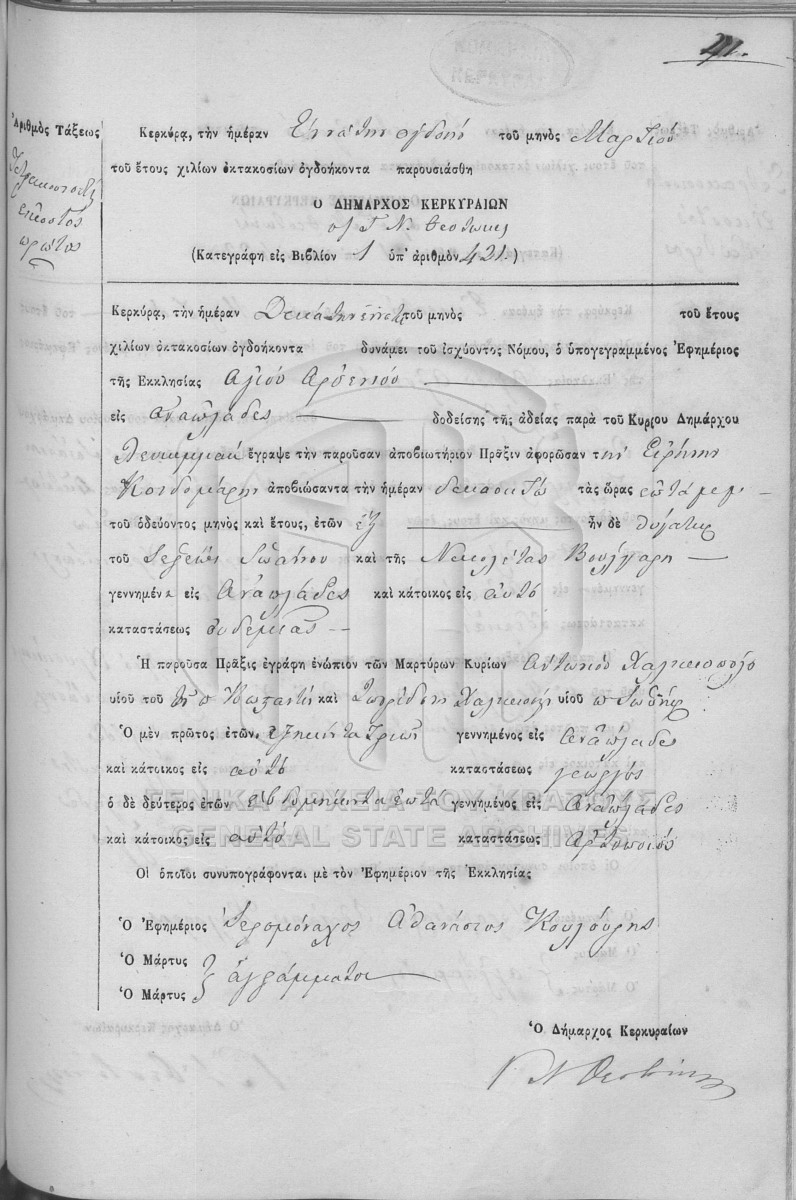 21.
Ἀριθμὸς Τάξεως
Τετρακοσιοστὸς
εἰκοστὸς
πρῶτος
Κερκύρα, τὴν ἡμέραν τοῦ μηνὸς Μαρτίου
τοῦ ἔτους χιλίων ὀκτακοσίων ὀγδοήκοντα παρουσιάσθη
Ο ΔΗΜΑΡΧΟΣ ΚΕΡΚΥΡΑΙΩΝ
Γ. Ν. Θεοτόκης
(Κατεγράφη εἰς Βιβλίον 1 ὑπ' ἀριθμὸν 421.)
Κερκύρα, τὴν ἡμέραν τοῦ μηνὸς τοῦ ἔτους
χιλίων ὀκτακοσίων ὀγδοήκοντα δυνάμει τοῦ ἰσχύοντος Νόμου, ὁ ὑπογεγραμμένος Ἐφημέριος
τῆς Ἐκκλησίας Ἁγίου Αρσενίου
εἰς Αναπλάδες δοδείσης τῆς ἀδείας παρὰ τοῦ Κυρίου Δημάρχου
ἔγραψε τὴν παροῦσαν ἀποβιωτήριον Πρᾶξιν ἀφορῶσαν τὴν Εἰρήνην
Κονδομάρη ἀποβιώσαντα τὴν ἡμέραν δεκαοκτώ τὰς ὥρας ἑπτά μ.μ.
τοῦ ὁδεύοντος μηνὸς καὶ ἔτους, ἐτῶν ἕξ ἦν δὲ θυγάτηρ
τοῦ Ἰωάννου καὶ τῆς Νικολέτας Βούλγαρη
γεννημένη εἰς Αναπλάδες καὶ κάτοικος εἰς αὐτό
καταστάσεως οὐδεμίας
Ἡ παροῦσα Πρᾶξις ἐγράφη ἐνώπιον τῶν Μαρτύρων Κυρίων Αντωνίου Χαλικιοπούλου
υἱοῦ τοῦ π Κωσταντή καὶ Σπυρίδων Χαλικιοπ υἱοῦ π Ιωσήφ
Ὁ μὲν πρῶτος ἐτῶν ἑξήκοντα τριῶν γεννημένος εἰς Αναπλάδες
καὶ κάτοικος εἰς αὐτό καταστάσεως γεωργός
ὁ δὲ δεύτερος ἐτῶν ἑβδομήκοντα ἑπτά γεννημένος εἰς Αναπλάδες
καὶ κάτοικος εἰς αὐτό καταστάσεως Αρτοποιός
Οἱ ὁποῖοι συνυπογράφονται μὲ τὸν Ἐφημέριον τῆς Ἐκκλησίας
Ὁ Ἐφημέριος Ἱερομόναχος Αθανάσιος Κουλούρης
Ὁ Μάρτυς
ἀγράμματοι
Ὁ Μάρτυς
Ὁ Δήμαρχος Κερκυραίων
Γ Ν Θεοτόκης
ΓΕΝΙΚΑ ΑΡΧΕΙΑ ΤΟΥ ΚΡΑΤΟΥΣ
GENERAL STATE ARCHIVES